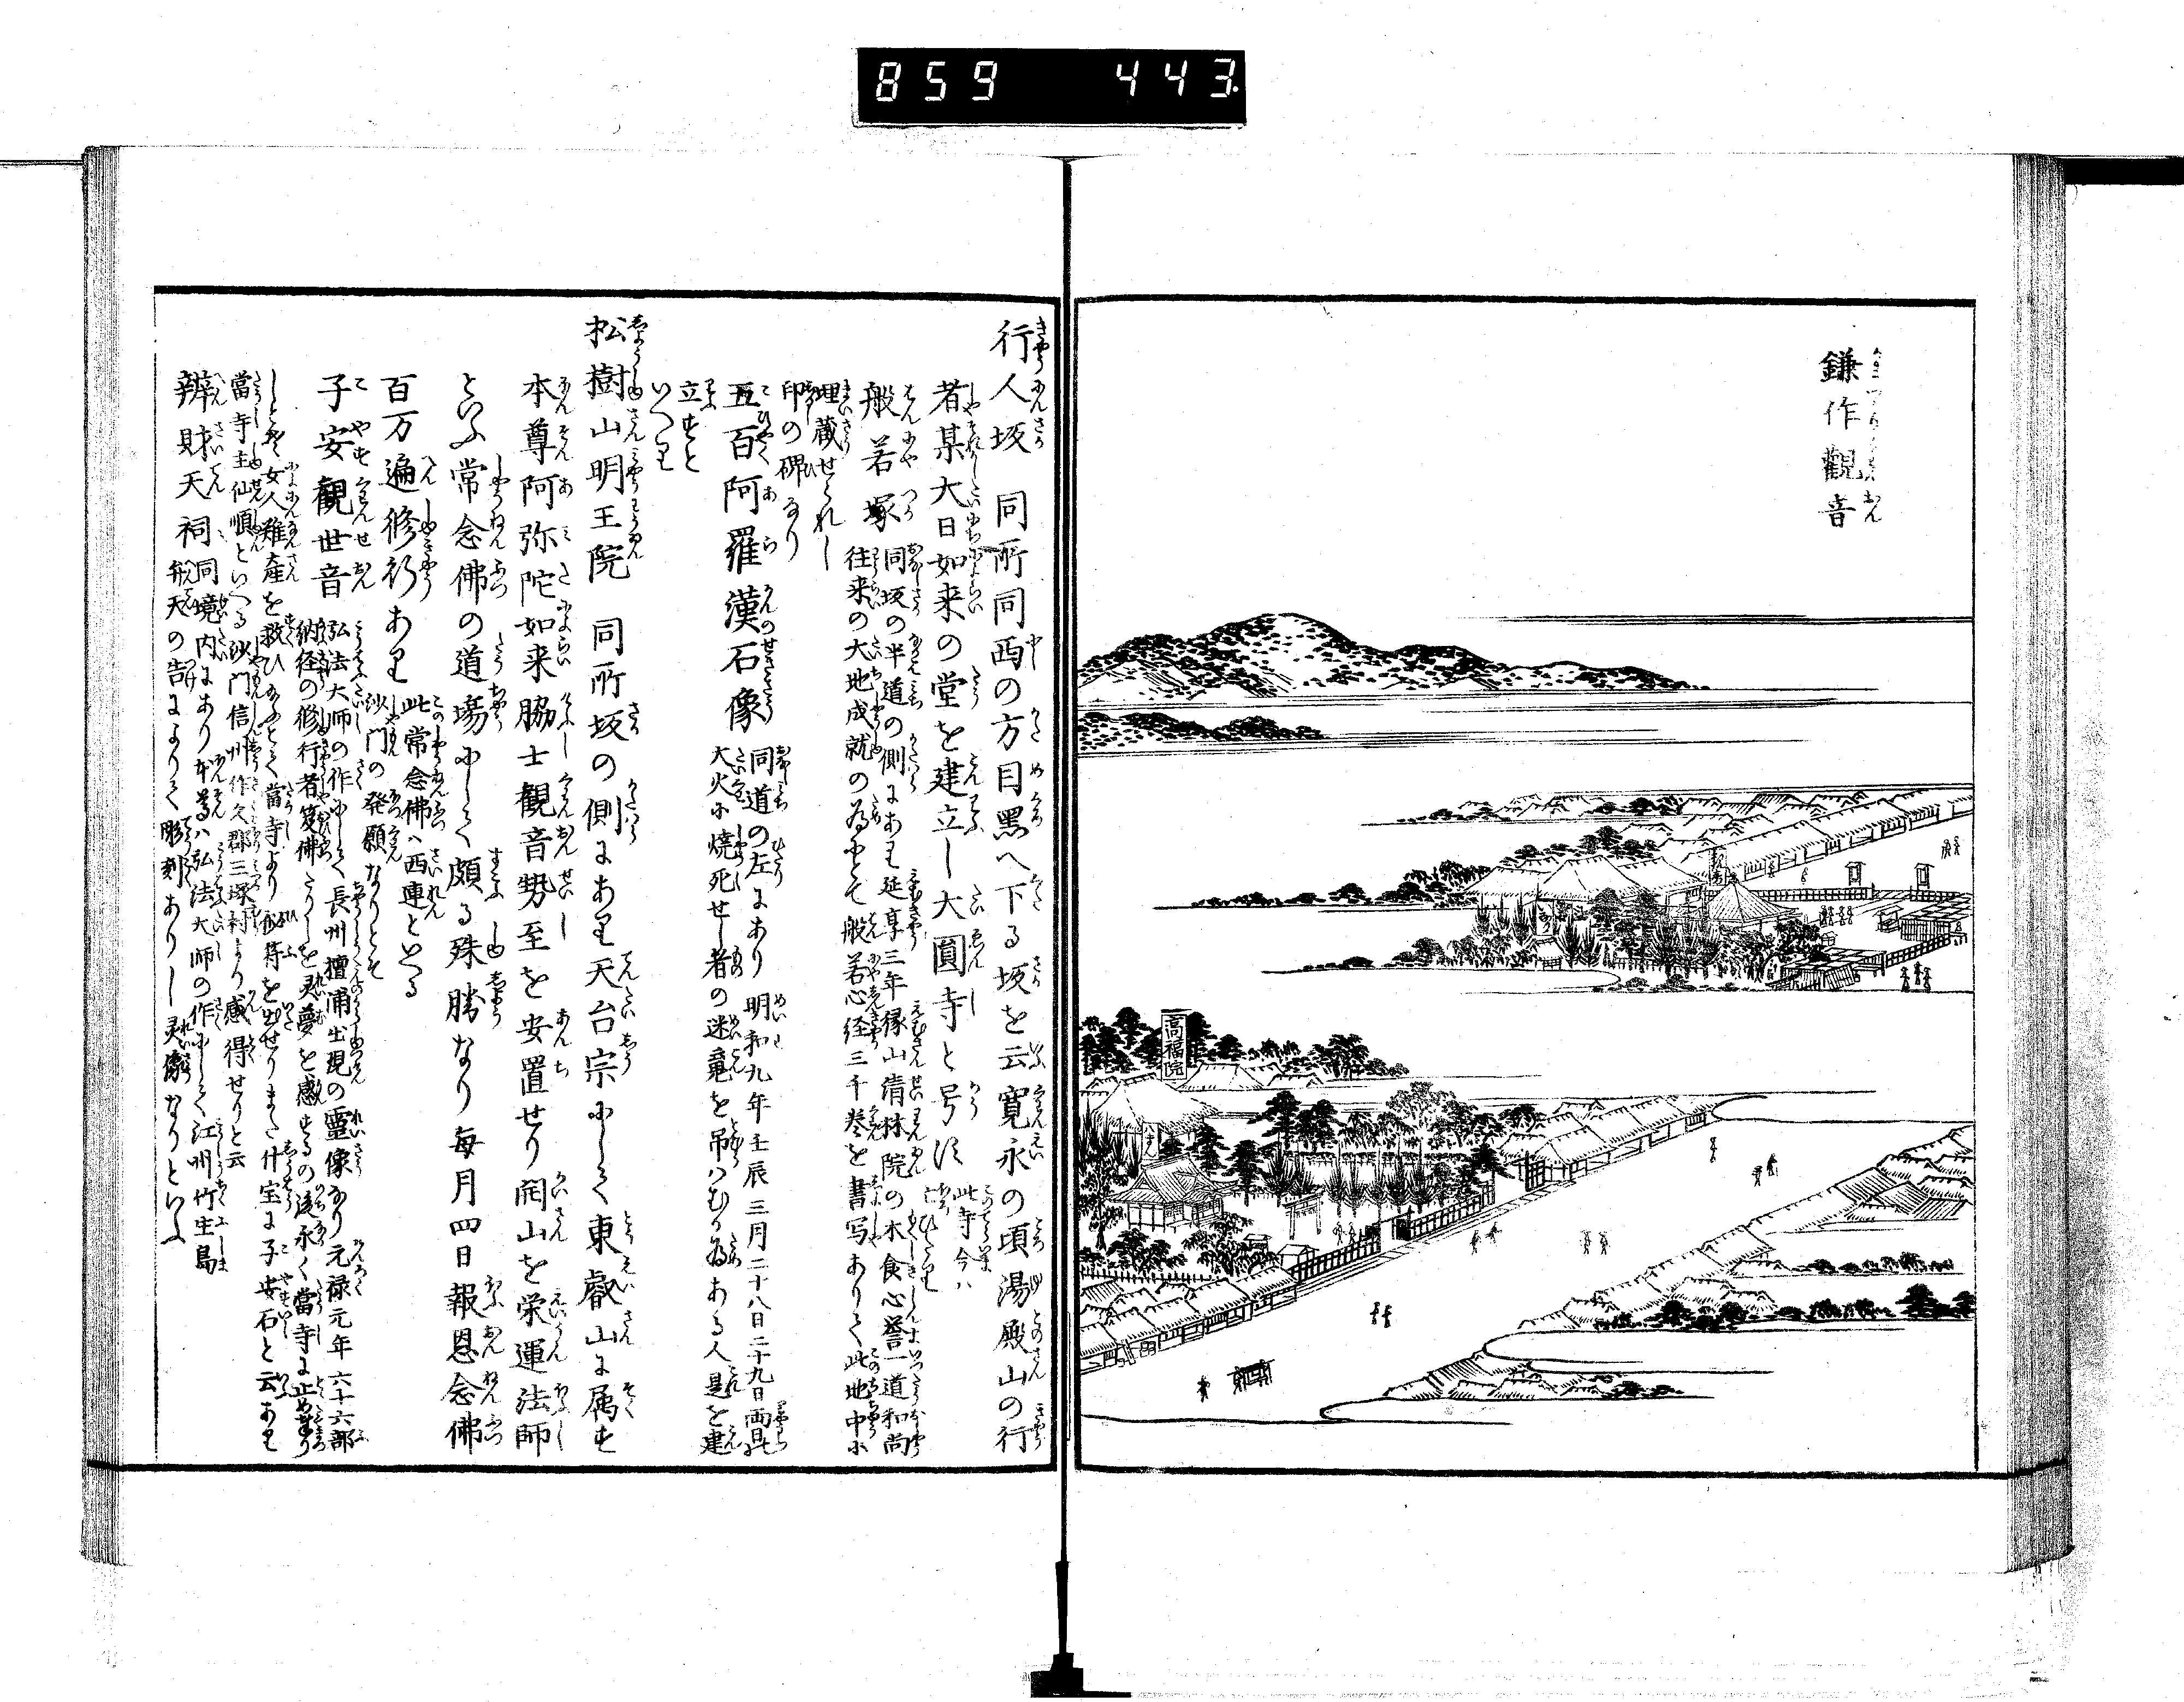 859 443
鎌作觀音
高福院
行人坂 同所同西の方目黒へ下る坂を云寛永の頃湯殿山の行
者某大日如来の堂を建立し大圓寺と号け
此寺今ハ
般若塚
同坂の半道の側にあり延享三年縁山清林院の木食心誉一道和尚
往来の大地成就の為にとて般若心経三千巻を書写ありて此地中に
埋蔵せられし
印の碑なり
五百阿羅漢石像
同道の左にあり明和九年壬辰三月二十八日二十九日両日の
大火に焼死せし者の迷竜を吊ハむ為ある人是を建
立すと
いへり
松樹山明王院 同所坂の側にあり天台宗にして東叡山に属す
本尊阿弥陀如来脇士観音勢至を安置せり開山を栄運法師
といふ常念佛の道場にして頗る殊勝なり毎月四日報恩念佛
百万遍修行あり
此常念佛ハ西連といへる
沙門の発願なりとそ
子安観世音
弘法大師の作にして長州檀浦出現の靈像なり元禄元年六十六部
納経の修行者笈佛たりしを灵夢を感するの後永く當寺に止め奉り
しとそ女人難産を救ひ給ふとて當寺より秘符を出せりまた什宝に子安石と云あり
當寺主仙順といへる沙門信州作久郡三塚村より感得せりと云
辨財天祠
同境内にあり本尊ハ弘法大師の作にして江州竹生島
弁天の告によりて彫刻ありし灵像なりといふ